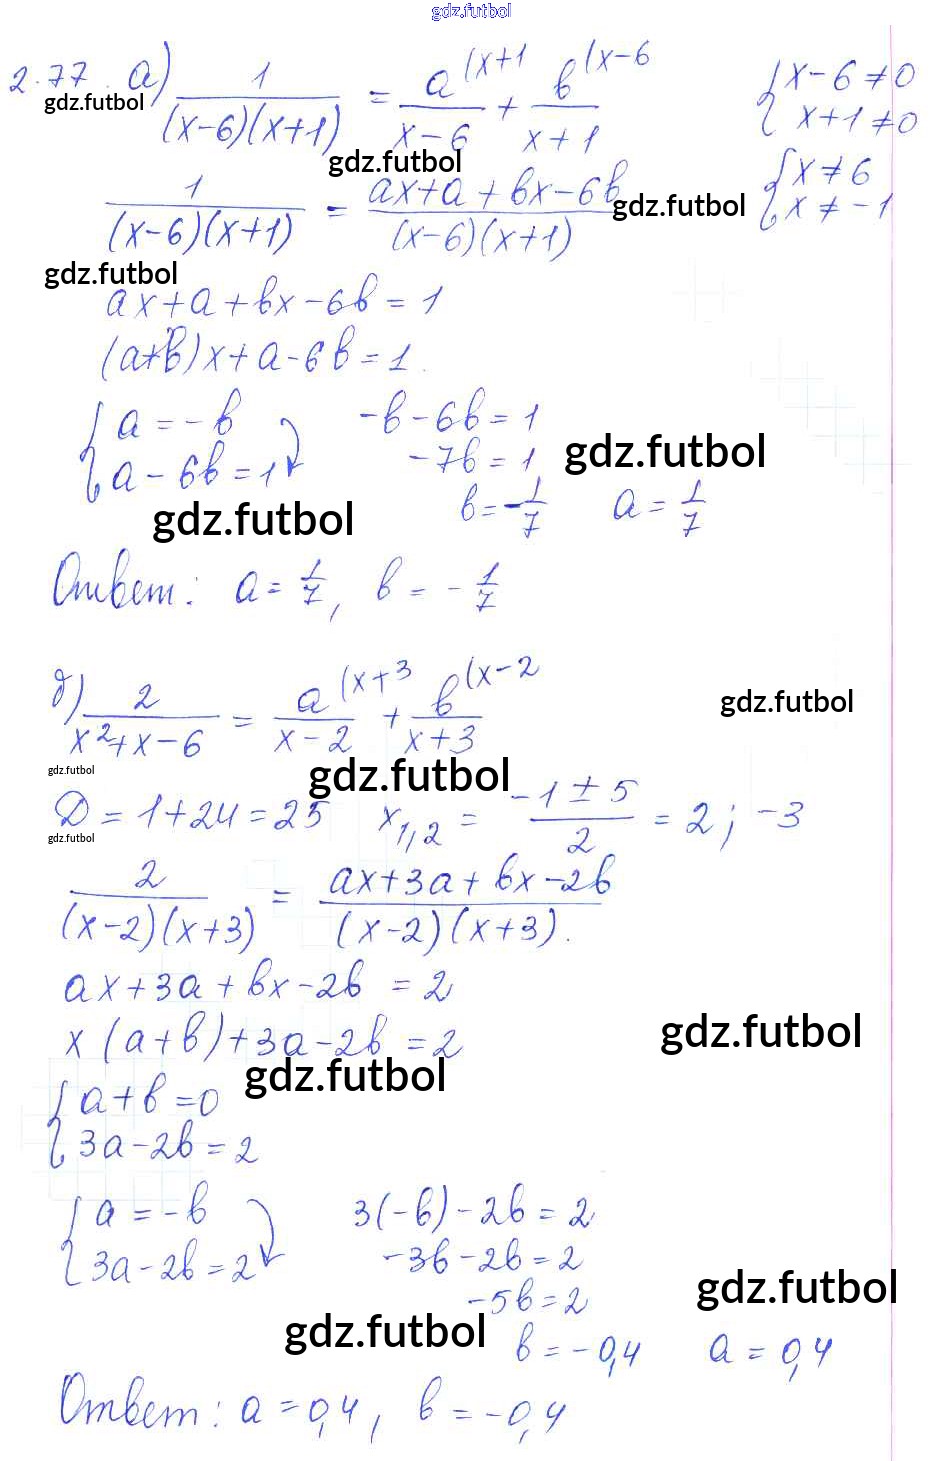 gdz.futbol
2.77. а) 1/((x-6)(x+1)) = a^(x+1/(x-6) + b^(x-6/(x+1) { x-6≠0
gdz.futbol { x+1≠0
gdz.futbol
1/((x-6)(x+1)) = (ax+a+bx-6b)/((x-6)(x+1)) { x≠6
gdz.futbol { x≠-1
gdz.futbol
ax+a+bx-6b=1
(a+b)x+a-6b=1.
{ a=-b -b-6b=1
{ a-6b=1 -7b=1
gdz.futbol
b=-1/7 a=1/7
gdz.futbol
Ответ: a=1/7, b=-1/7
б) 2/(x²+x-6) = a^(x+3/(x-2) + b^(x-2/(x+3)
gdz.futbol
gdz.futbol
gdz.futbol
D=1+24=25 x1,2 = (-1±5)/2 = 2; -3
gdz.futbol
2/((x-2)(x+3)) = (ax+3a+bx-2b)/((x-2)(x+3)).
ax+3a+bx-2b=2
gdz.futbol
x(a+b)+3a-2b=2
gdz.futbol
{ a+b=0
{ 3a-2b=2
{ a=-b 3(-b)-2b=2
{ 3a-2b=2 -3b-2b=2
gdz.futbol
-5b=2
gdz.futbol
b=-0,4 a=0,4
Ответ: a=0,4, b=-0,4